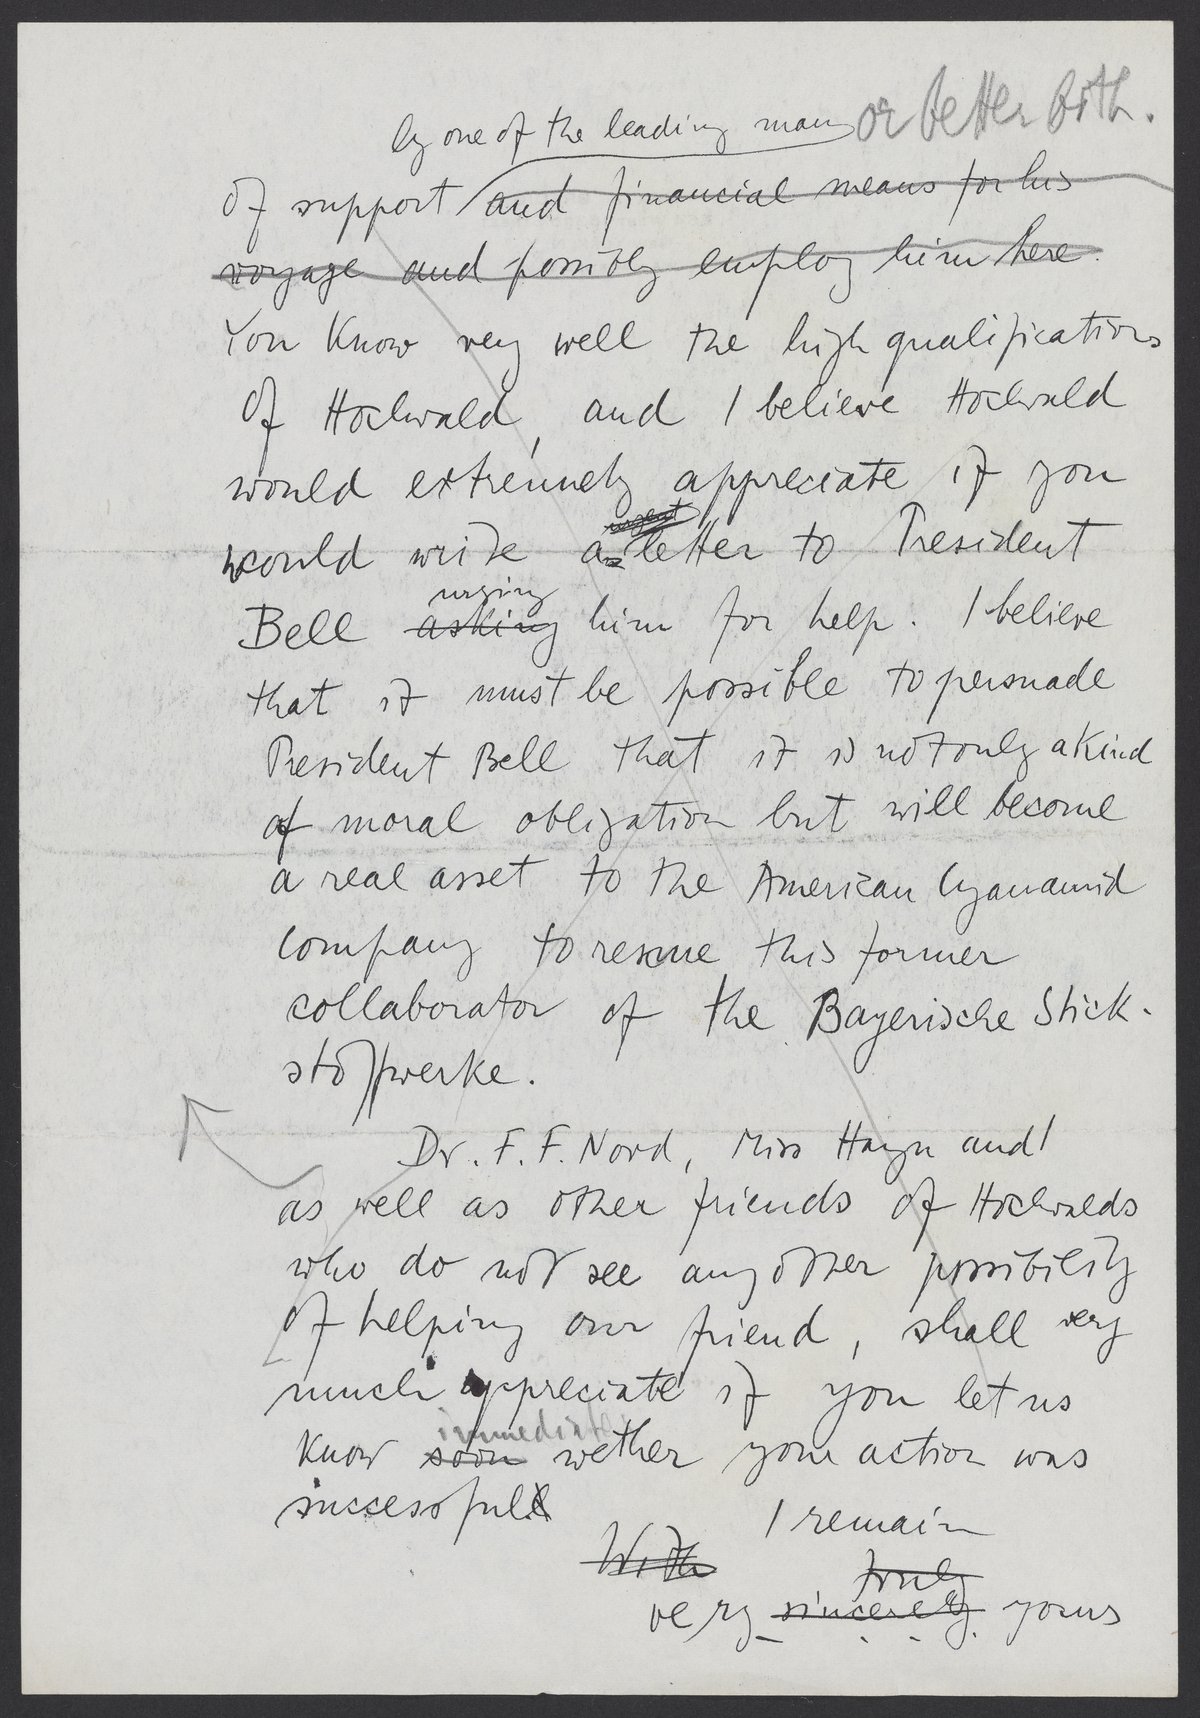 by one of the leading many or better both.
of support and financial means for his
voyage and possibly employ him here.
You know very well the high qualifications
of Hochwald, and I believe Hochwald
would extremely appreciate if you
would write a urgent letter to President
urging
Bell asking him for help. I believe
that it must be possible to persuade
President Bell that it is not only a kind
of moral obligation but will become
a real asset to the American Cyanamid
Company to rescue this former
collaborator of the Bayerische Stick-
stoffwerke.
Dr. F. F. Nord, Miss Hayn and I
as well as other friends of Hochwalds
who do not see any other possibility
of helping our friend, shall very
much appreciate if you let us
immediatly
know soon wether your action was
successful
I remain
With
truly
very sincerely yours